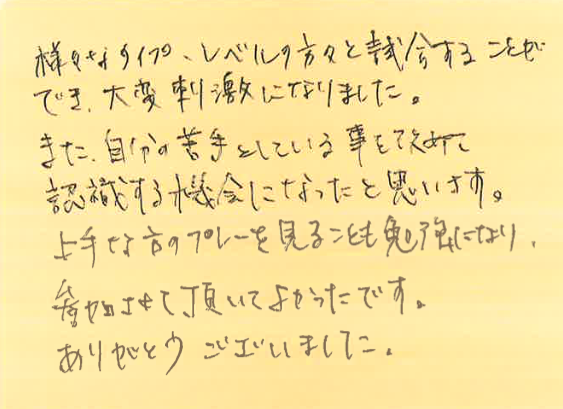 様々なタイプ、レベルの方々と試合することが
でき、大変刺激になりました。
また、自分の苦手としている事を改めて
認識する機会になったと思います。
上手な方のプレーを見ることも勉強になり、
参加させて頂いてよかったです。
ありがとうございました。